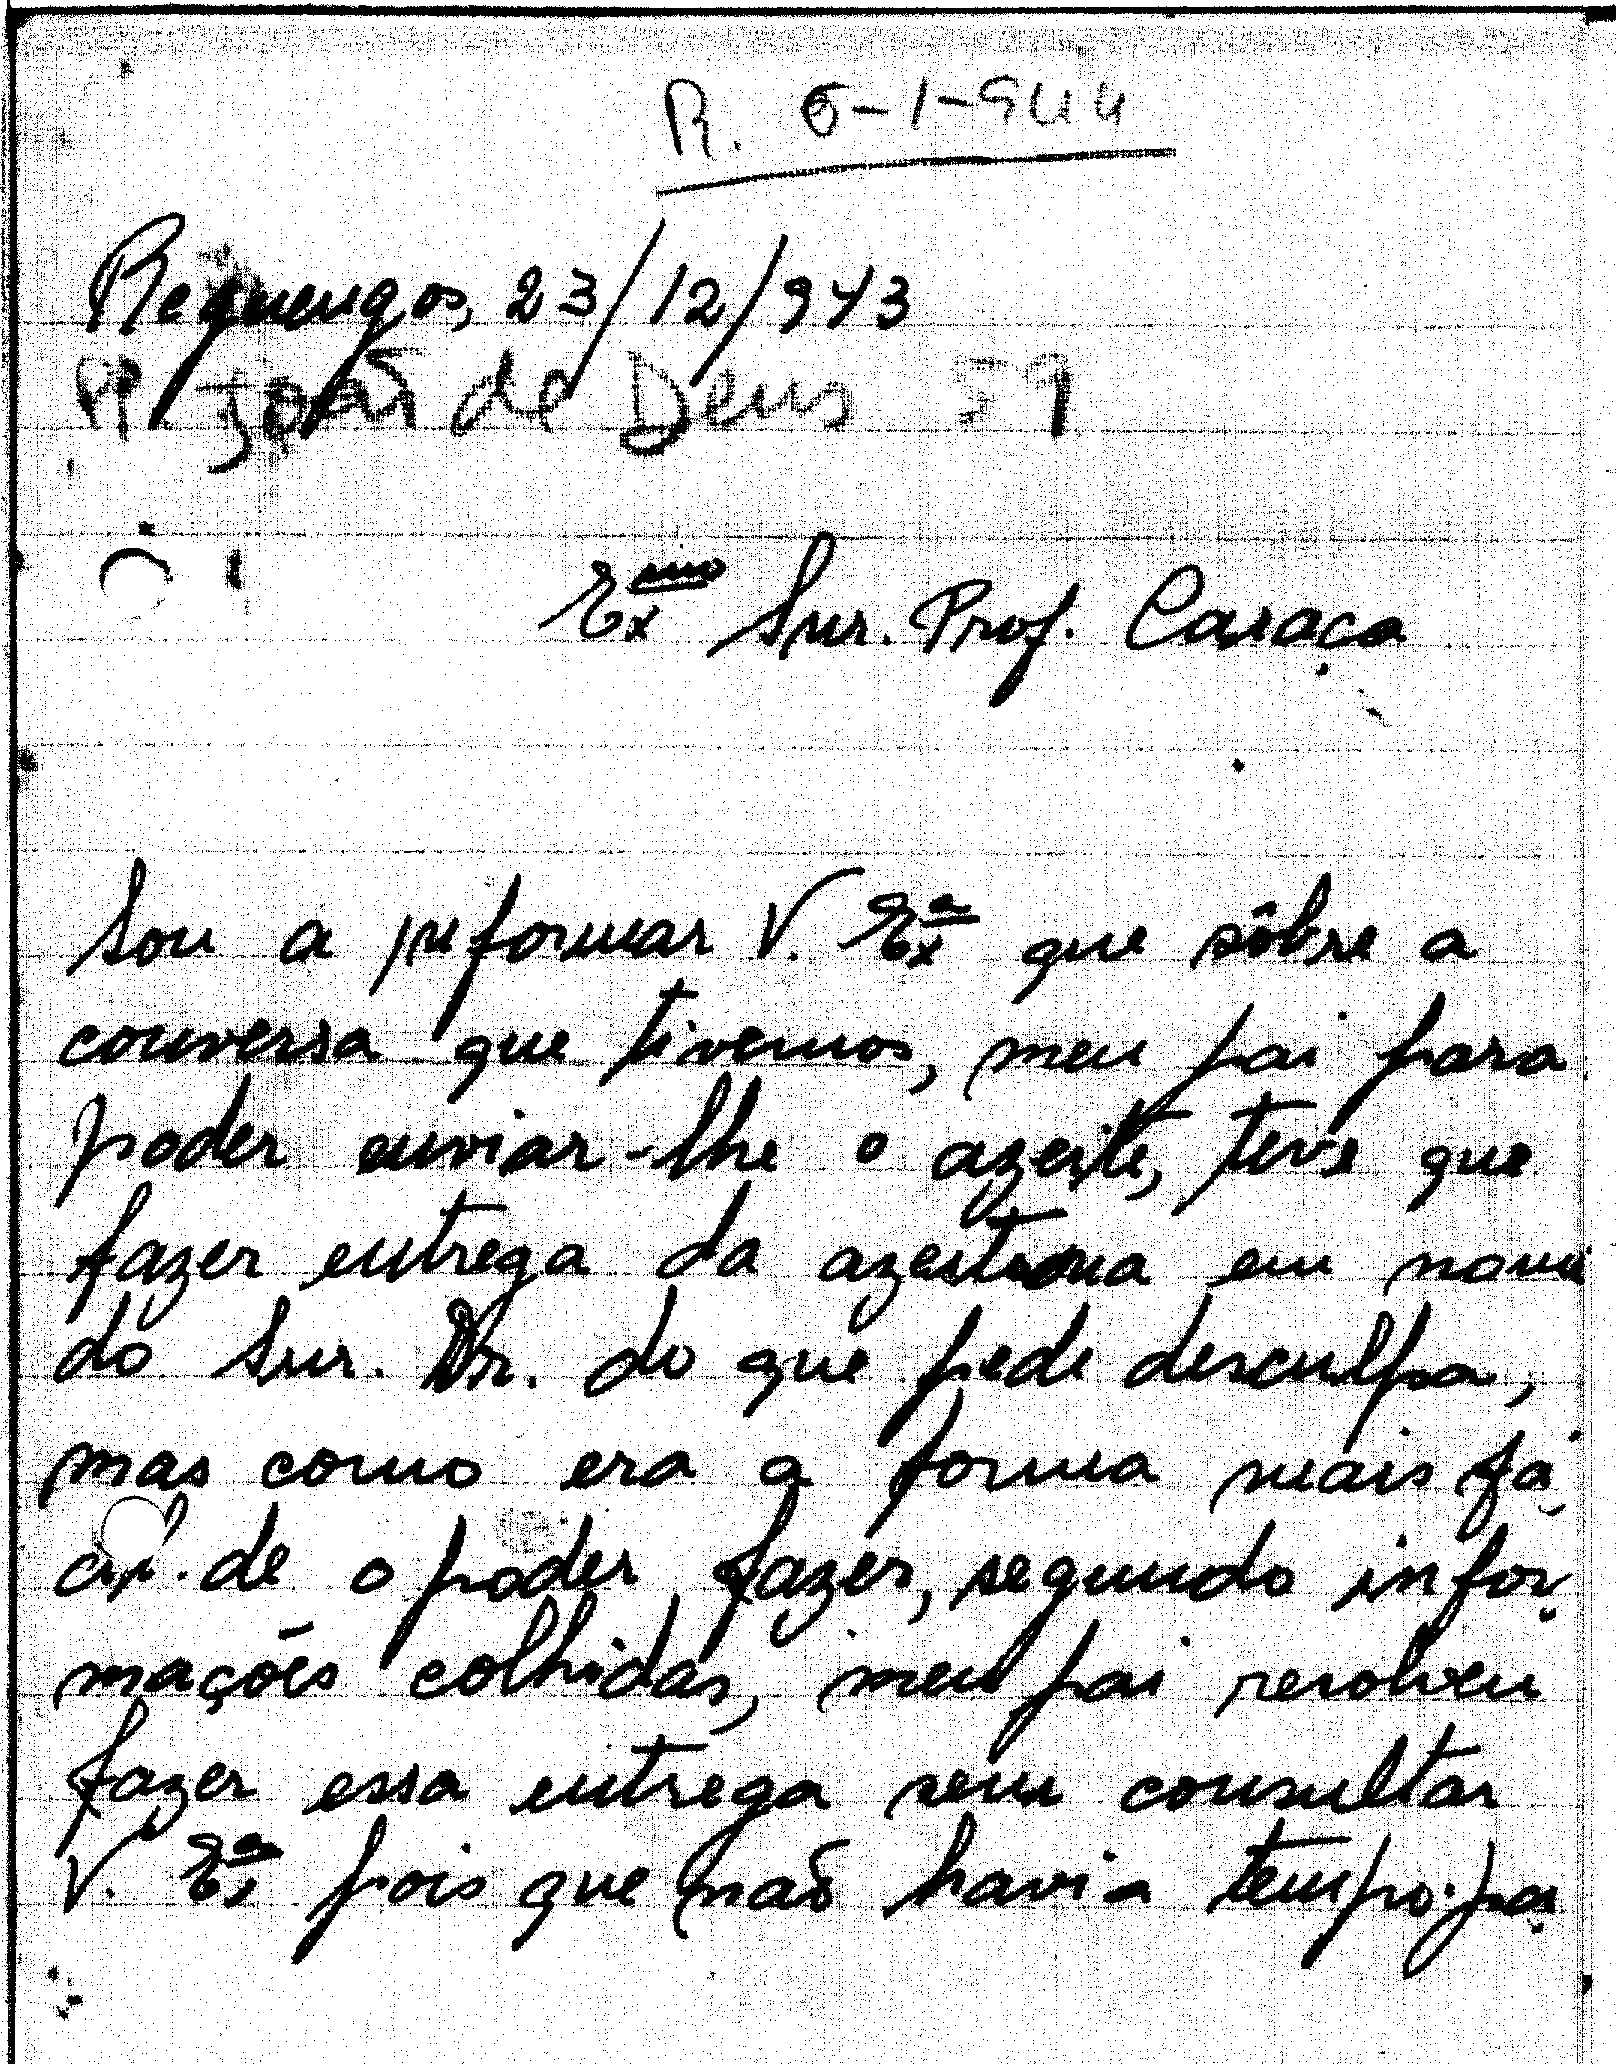 R. 6-1-944
Reguengos, 23/12/943
R. João de Deus 59
Exmo Snr. Prof. Caraça
Sou a informar V. Exa que sôbre a
conversa que tivemos, meu pai para
poder enviar-lhe o azeite, teve que
fazer entrega da azeitona em nome
do Snr. Dr. do que pede desculpa,
mas como era a forma mais fá
cil de o poder fazer, segundo infor
mações colhidas, meu pai resolveu
fazer essa entrega sem consultar
V. Exa pois que não havia tempo pa